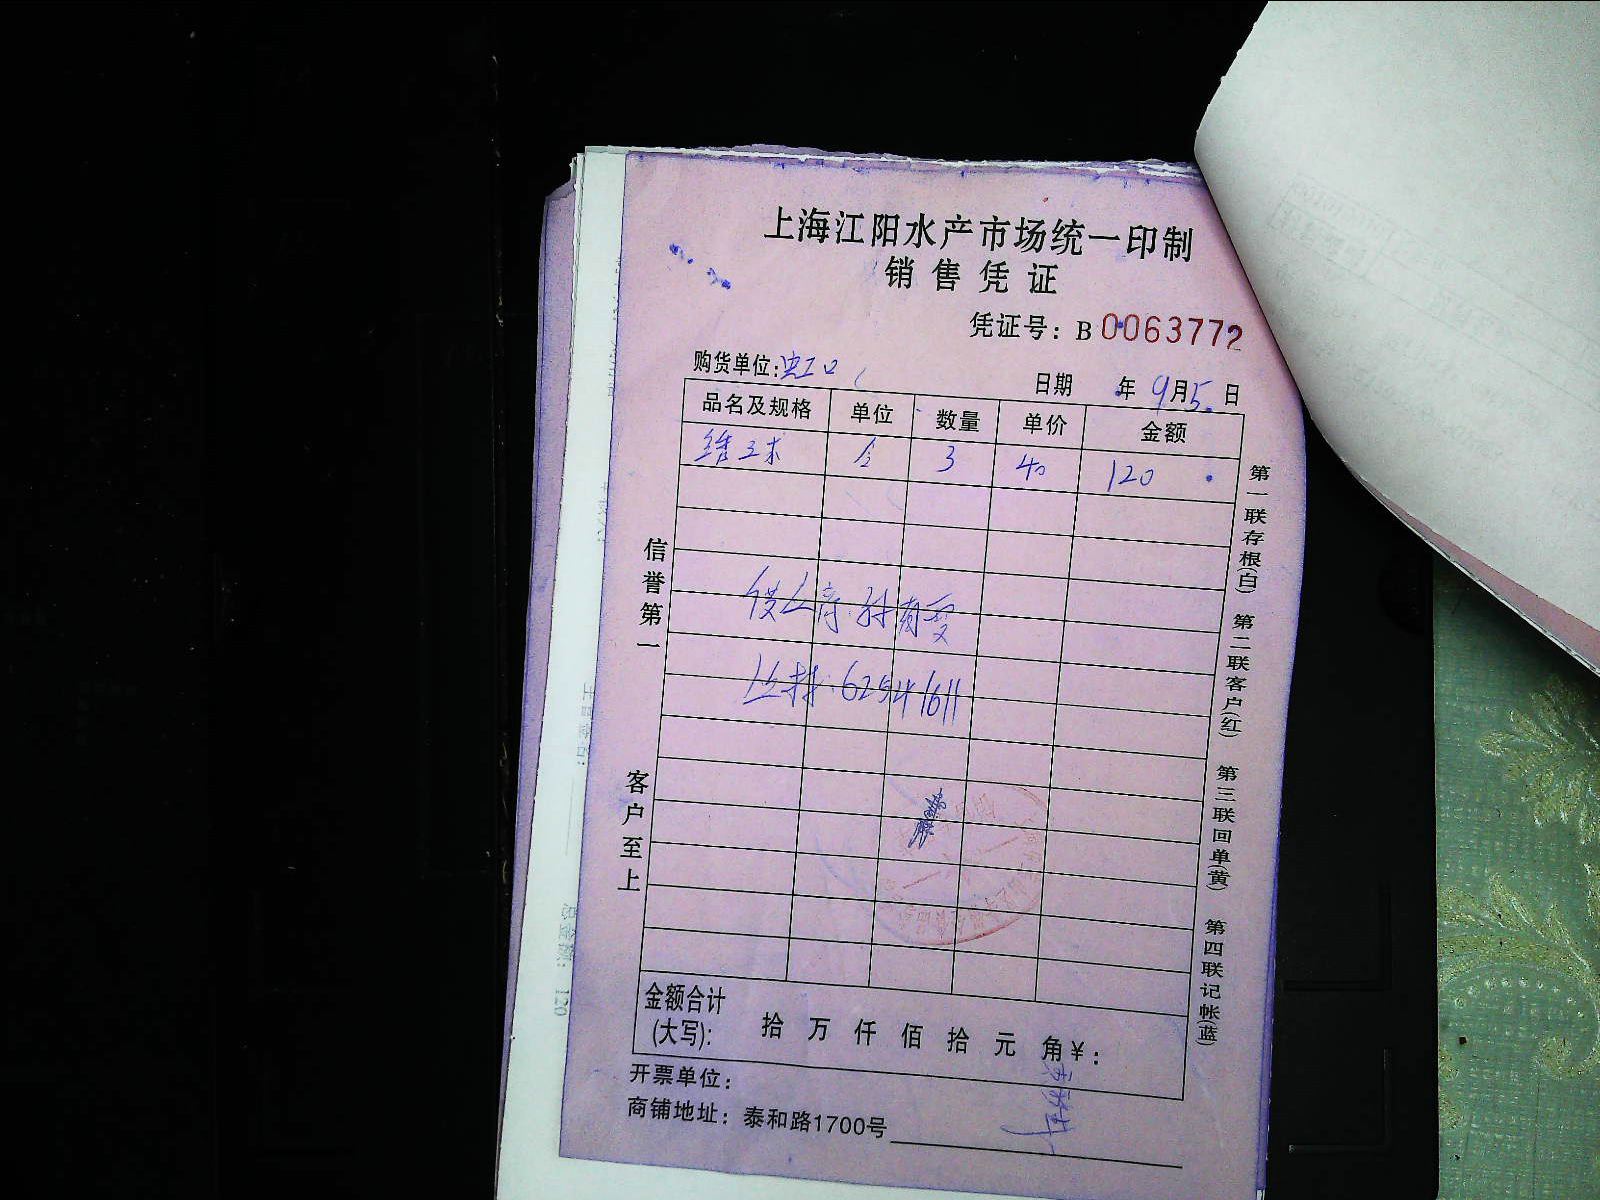 上海江阳水产市场统一印制
销售凭证
凭证号：B 0063772
购货单位：虹口
日期 年 9月5日
品名及规格 单位 数量 单价 金额
绣球 3 40 120
信誉第一
客户至上
第一联存根(白) 第二联客户(红) 第三联回单(黄) 第四联记帐(蓝)
金额合计
(大写)： 拾 万 仟 佰 拾 元 角￥：
开票单位：
商铺地址：泰和路1700号